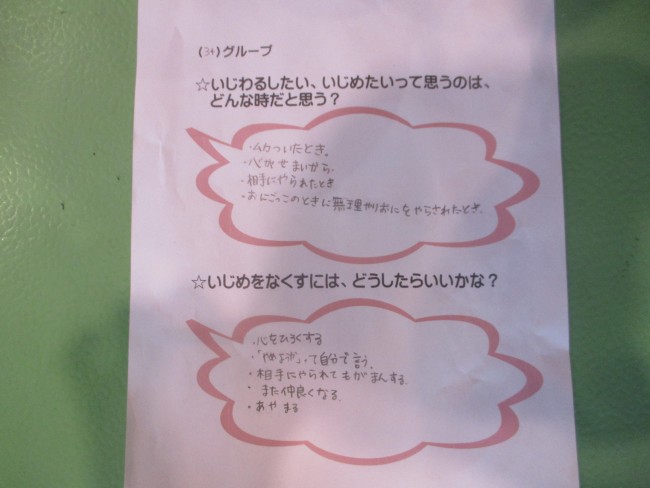 (34)グループ
☆いじわるしたい、いじめたいって思うのは、
どんな時だと思う？
・ムカついたとき。
・心がせまいから.
・相手にやられたとき
・おにごっこのときに無理やりおにをやらされたとき.
☆いじめをなくすには、どうしたらいいかな？
・心をひろくする
・「やめようよ」って自分で言う.
・相手にやられてもがまんする.
・また仲良くなる.
・あやまる